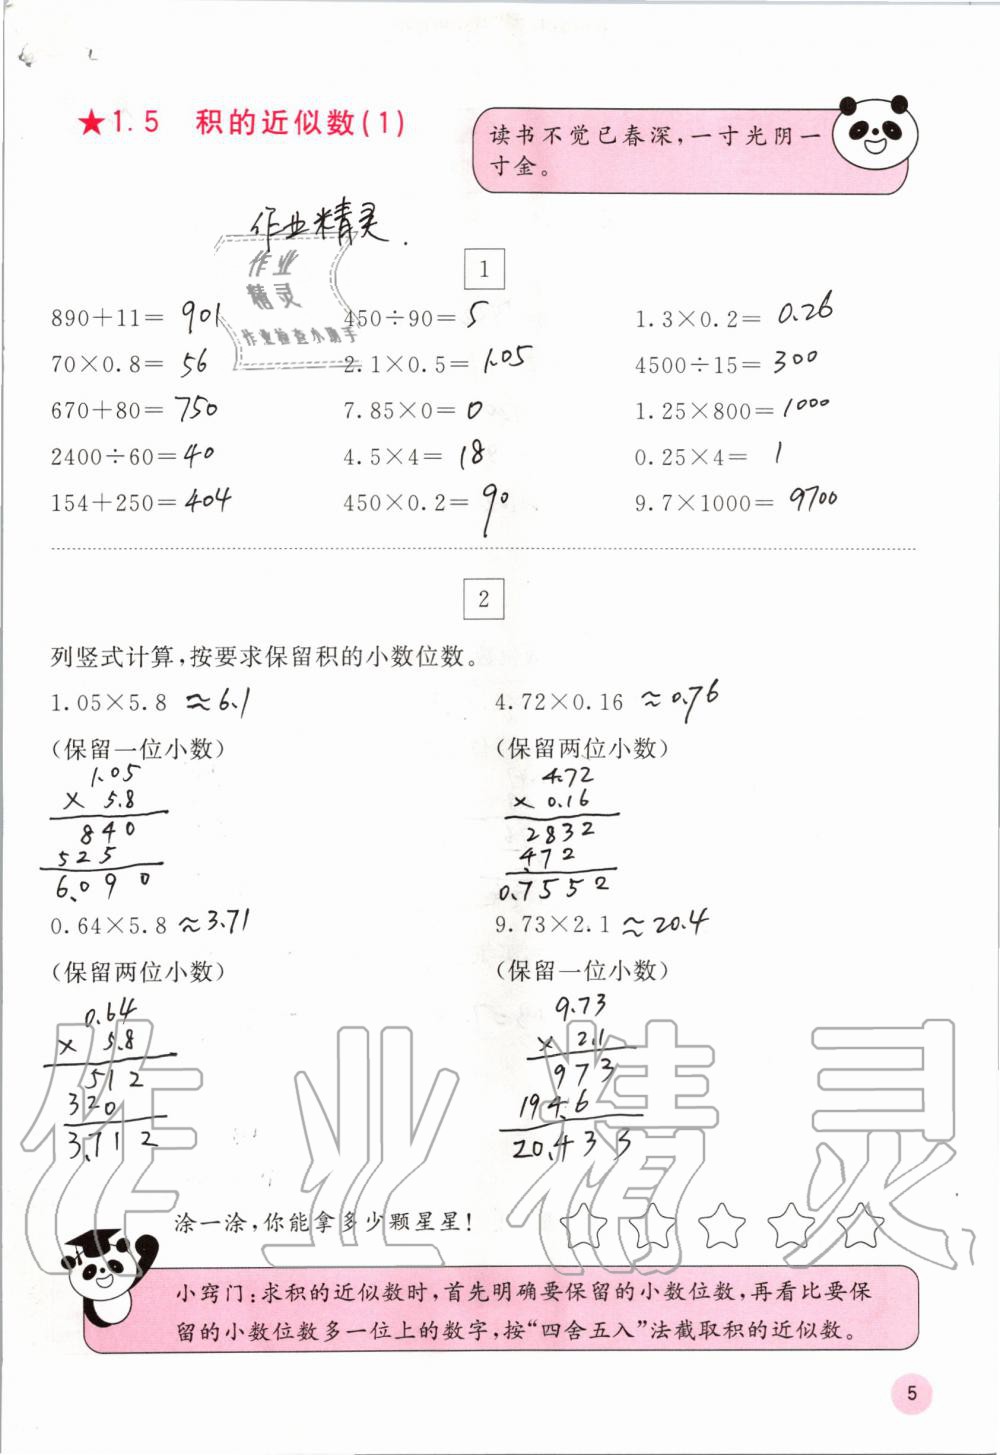 ★1.5 积的近似数(1)
读书不觉已春深,一寸光阴一
寸金。
作业精灵
作业
精灵
作业检查小助手
1
890+11= 901 450÷90= 5 1.3×0.2= 0.26
70×0.8= 56 2.1×0.5= 1.05 4500÷15= 300
670+80= 750 7.85×0= 0 1.25×800= 1000
2400÷60= 40 4.5×4= 18 0.25×4= 1
154+250= 404 450×0.2= 90 9.7×1000= 9700
2
列竖式计算,按要求保留积的小数位数。
1.05×5.8 ≈6.1 4.72×0.16 ≈0.76
(保留一位小数) (保留两位小数)
1.05 4.72
× 5.8 × 0.16
840 2832
525 472
6.090 0.7552
0.64×5.8 ≈3.71 9.73×2.1 ≈20.4
(保留两位小数) (保留一位小数)
0.64 9.73
× 5.8 × 2.1
512 973
320 1946
3.712 20.433
作业精灵
涂一涂,你能拿多少颗星星!
小窍门:求积的近似数时,首先明确要保留的小数位数,再看比要保
留的小数位数多一位上的数字,按“四舍五入”法截取积的近似数。
5